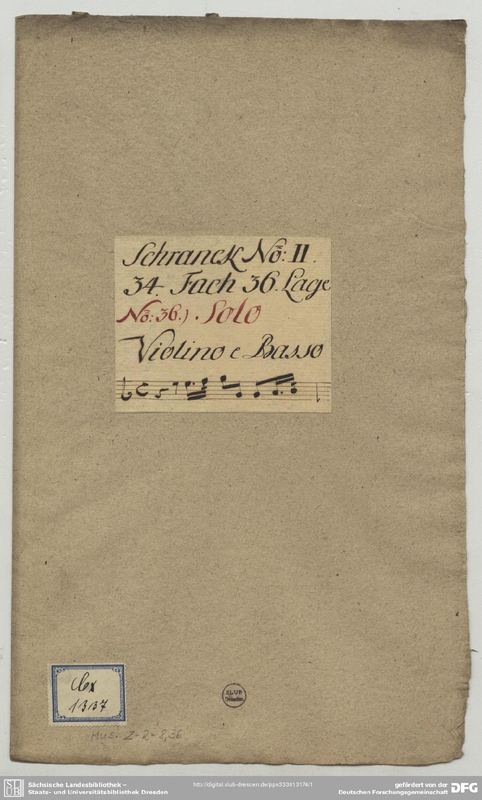 Schranck No: II.
34. Fach 36. Lage
No: 36.) . Solo
Violino e Basso
1337
Mus. 2-R-8,36
SLUB
Sächsische Landesbibliothek –
Staats- und Universitätsbibliothek Dresden
http://digital.slub-dresden.de/ppn333913176/1
gefördert von der
Deutschen Forschungsgemeinschaft
DFG